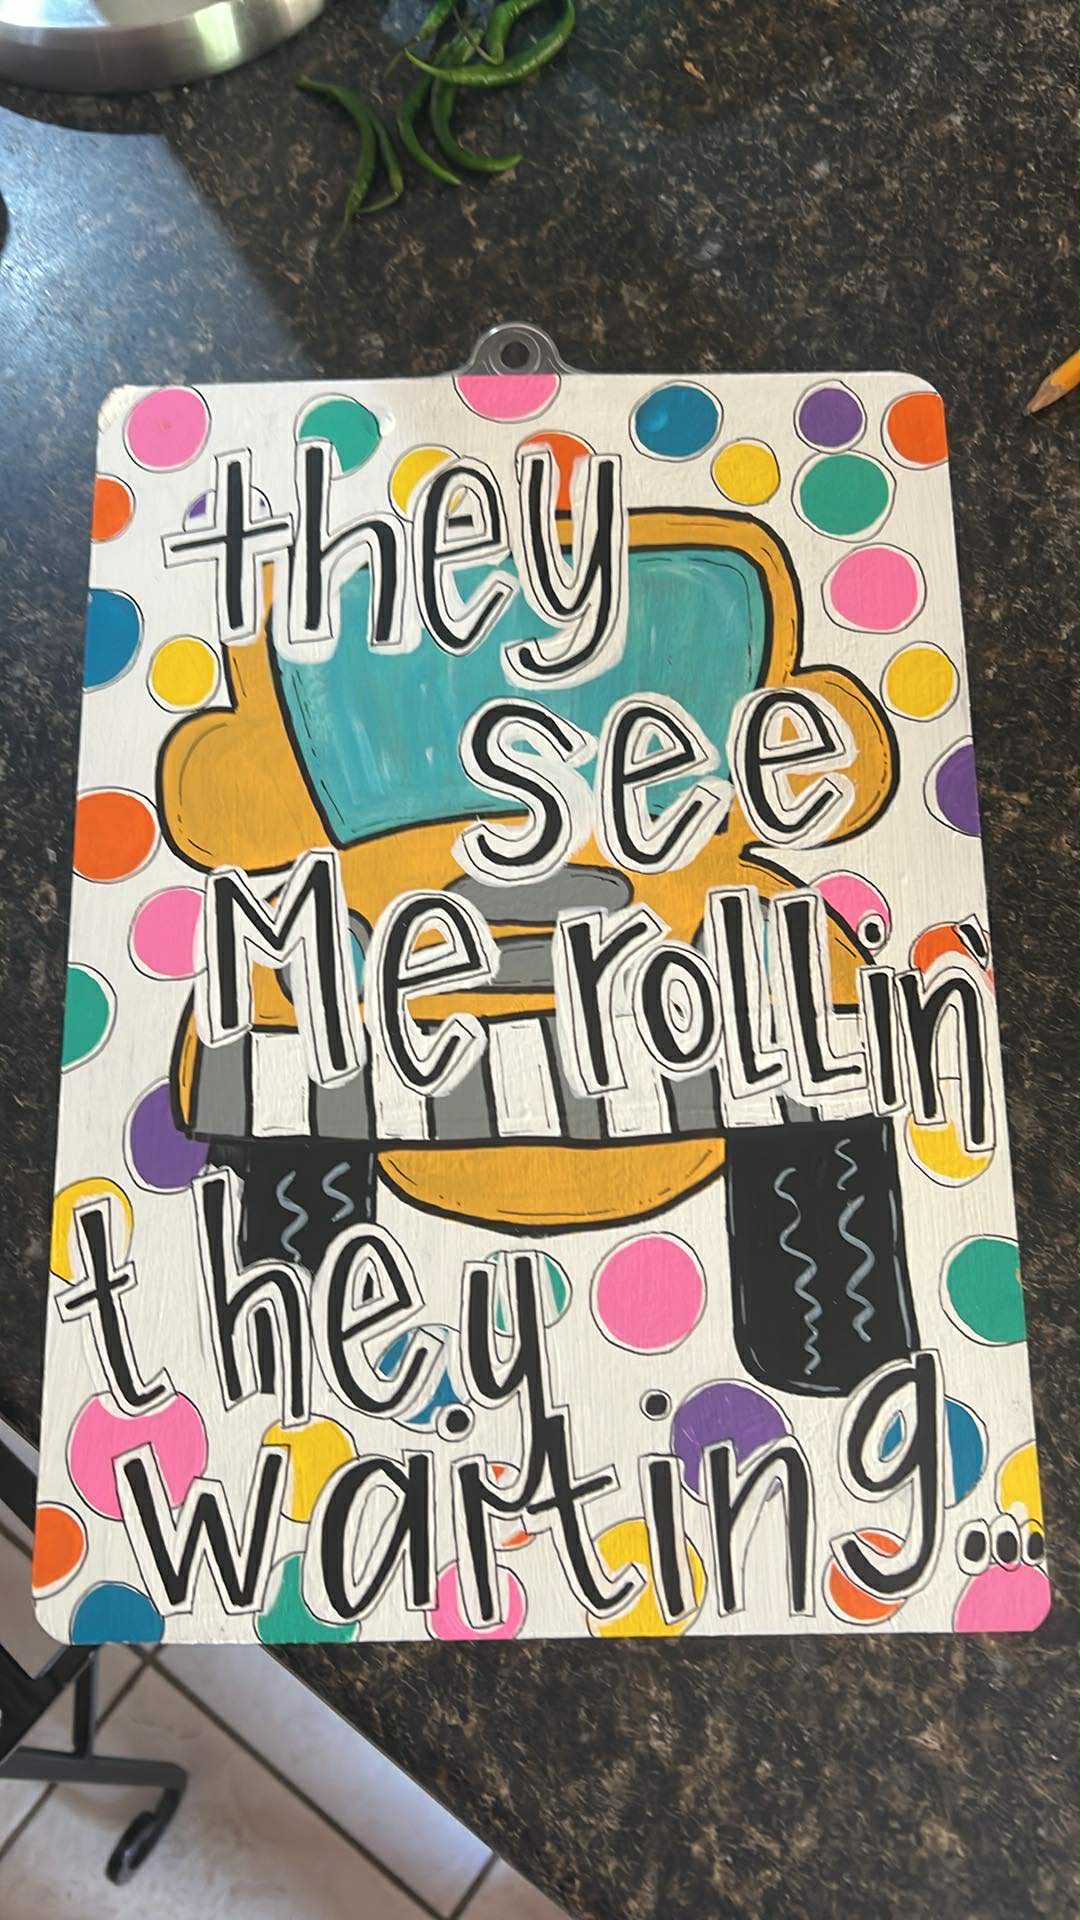 they
see
Me rollin'
they
waiting...